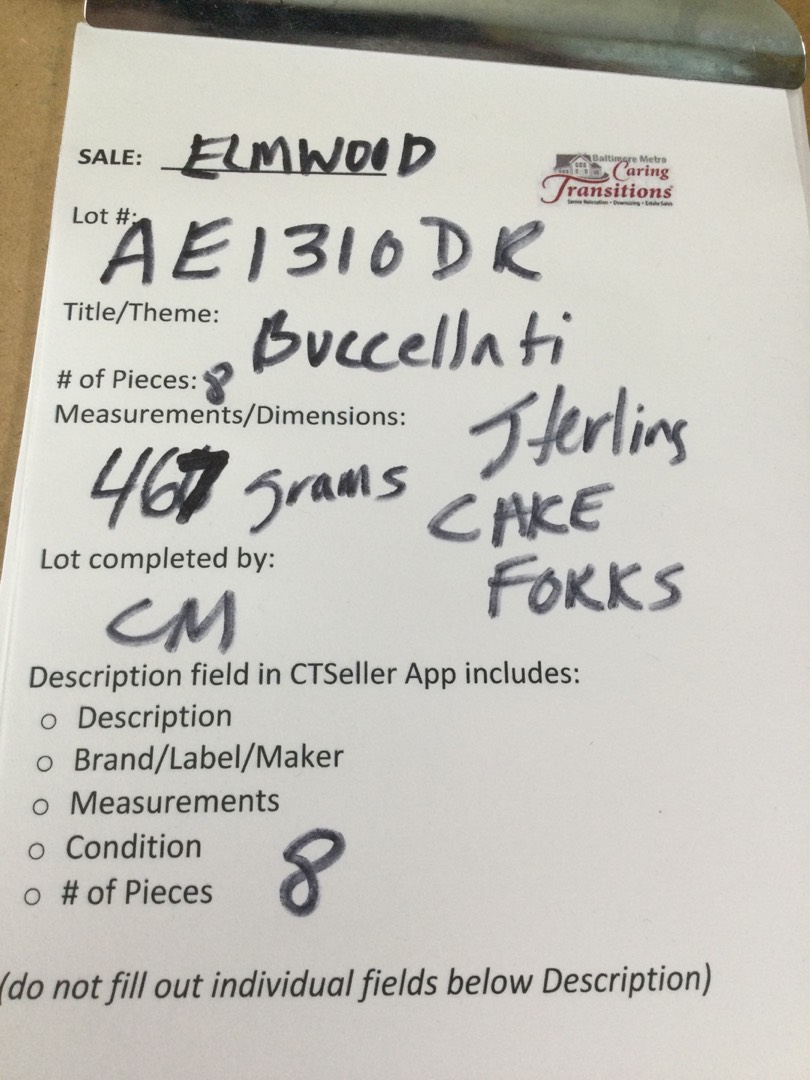 SALE: ELMWOOD
Baltimore Metro
Caring
Transitions
Senior Relocation • Downsizing • Estate Sales
Lot #: AE1310DR
Title/Theme: Buccellati
# of Pieces: 8
Measurements/Dimensions: Sterling
467 grams CAKE
FORKS
Lot completed by:
CM
Description field in CTSeller App includes:
o Description
o Brand/Label/Maker
o Measurements
o Condition
o # of Pieces 8
(do not fill out individual fields below Description)